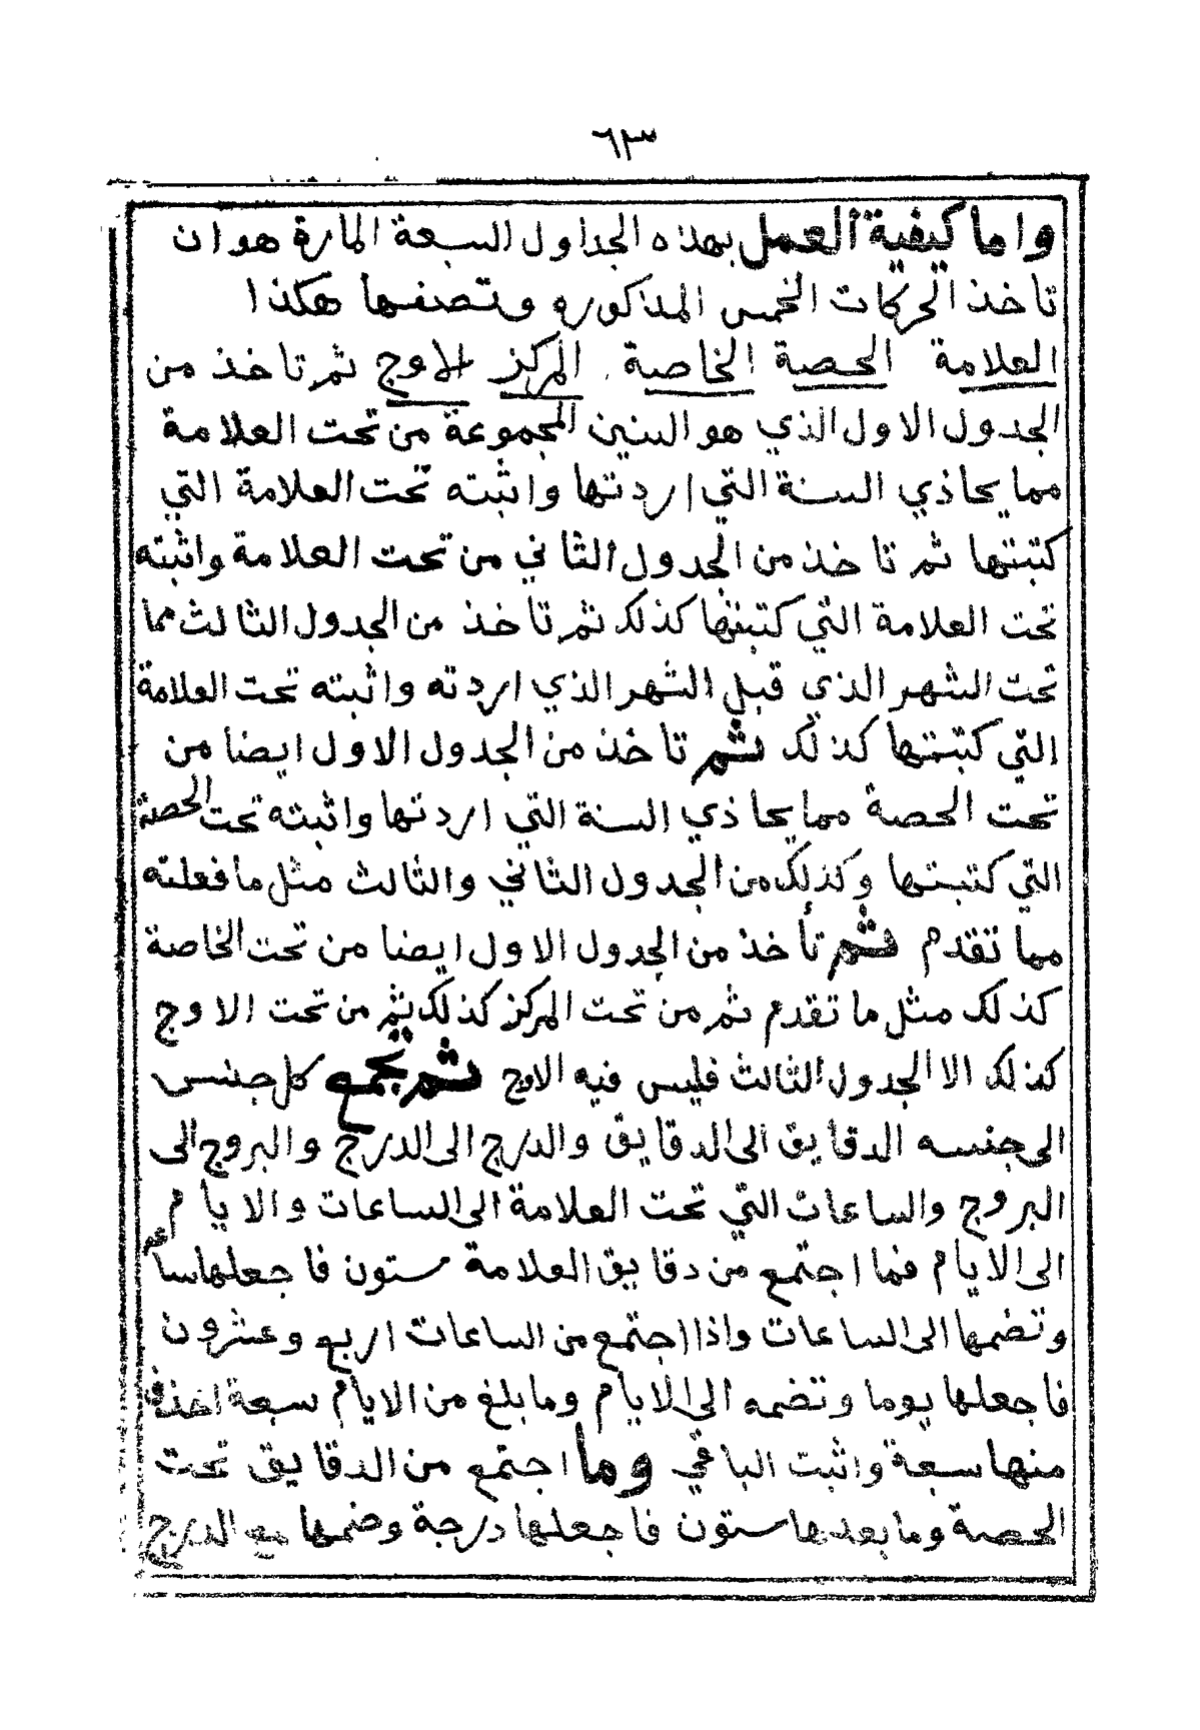 ٦٣
واما كيفية العمل بهذه الجداول السبعة المارة هو ان
تاخذ الحركات الخمس المذكوره وتصفها هكذا
العلامة الحصة الخاصة المركز الاوج ثم تاخذ من
الجدول الاول الذي هو السنين المجموعة من تحت العلامة
مما يحاذي السنة التي اردتها واثبته تحت العلامة التي
كتبتها ثم تاخذ من الجدول الثاني من تحت العلامة واثبته
تحت العلامة التي كتبتها كذلك ثم تاخذ من الجدول الثالث مما
تحت الشهر الذي قبل الشهر الذي اردته واثبته تحت العلامة
التي كتبتها كذلك ثم تاخذ من الجدول الاول ايضا من
تحت الحصة مما يحاذي السنة التي اردتها واثبته تحت الحصة
التي كتبتها وكذلك من الجدول الثاني والثالث مثل ما فعلته
مما تقدم ثم تأخذ من الجدول الاول ايضا من تحت الخاصة
كذلك مثل ما تقدم ثم من تحت المركز كذلك ثم من تحت الاوج
كذلك الا الجدول الثالث فليس فيه الاوج ثم تجمع كل جنس
الى جنسه الدقايق الى الدقايق والدرج الى الدرج والبروج الى
البروج والساعات التي تحت العلامة الى الساعات والايام
الى الايام فما اجتمع من دقايق العلامة ستون فاجعلها ساعة
وتضمها الى الساعات واذا اجتمع من الساعات اربع وعشرون
فاجعلها يوما وتضمه الى الايام وما بلغ من الايام سبعة احذف
منها سبعة واثبت الباقي وما اجتمع من الدقايق تحت
الحصة وما بعدها ستون فاجعلها درجة وضمها مع الدرج